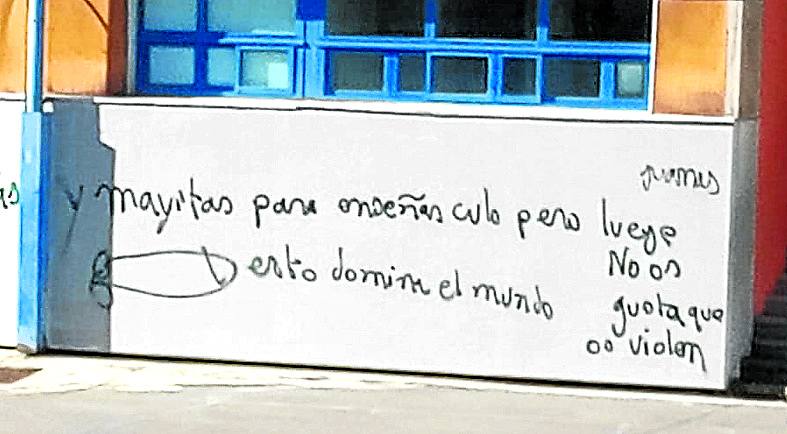 y mayitas para enseñas culo pero luego
No os
gusta que
os violen
esto domina el mundo